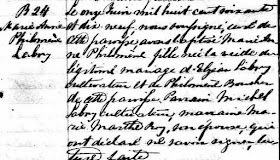 B 24
Marie Anne
Philomène
Labry
Le onze Juin mil huit cent soixante
et dix neuf, nous soussigné, curé de
cette paroisse, avons baptisé Marie An-
ne Philomène fille née la veille du
légitime mariage d'Elzéar Labry
cultivateur et de Philomène Boucher
de cette paroisse. Parrain Michel
Labry cultivateur, marraine Ma-
rie Marthe Roy, son épouse, qui
ont déclaré ne savoir signer, lec-
ture faite